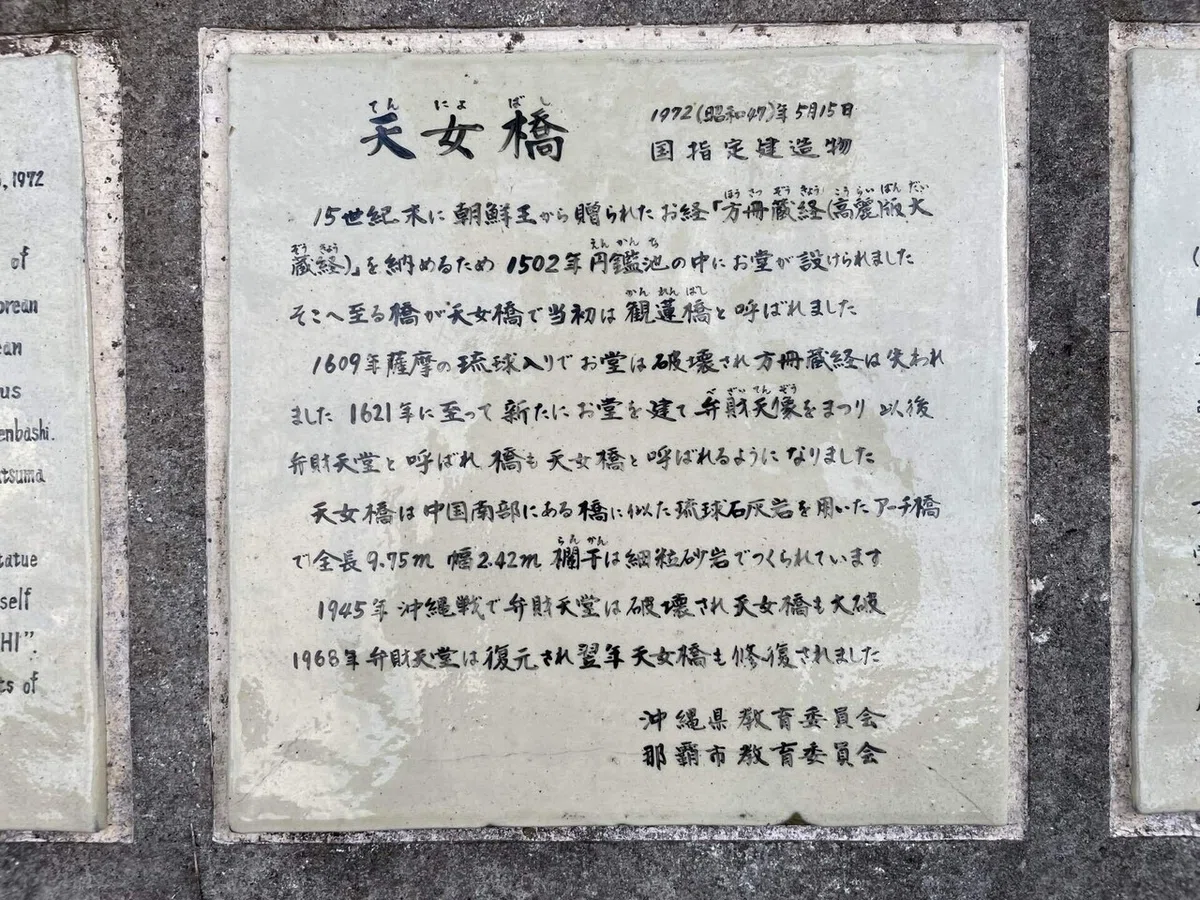 , 1972
of
orean
ean
us
enbashi.
tsuma
tatue
self
HI”.
ts of
てんにょばし
天女橋
1972(昭和47)年5月15日
国指定建造物
ほうさつぞうきょう こうらいばんだい
15世紀末に朝鮮王から贈られたお経「方冊蔵経(高麗版大
ぞうきょう えんかんち
蔵経)」を納めるため 1502年円鑑池の中にお堂が設けられました
かんれんばし
そこへ至る橋が天女橋で当初は観蓮橋と呼ばれました
1609年薩摩の琉球入りでお堂は破壊され方冊蔵経は失われ
べざいてんぞう
ました 1621年に至って新たにお堂を建て弁財天像をまつり以後
弁財天堂と呼ばれ 橋も天女橋と呼ばれるようになりました
天女橋は中国南部にある橋に似た琉球石灰岩を用いたアーチ橋
らんかん
で全長9.75m 幅2.42m 欄干は細粒砂岩でつくられています
1945年沖縄戦で弁財天堂は破壊され天女橋も大破
1968年弁財天堂は復元され翌年天女橋も修復されました
沖縄県教育委員会
那覇市教育委員会